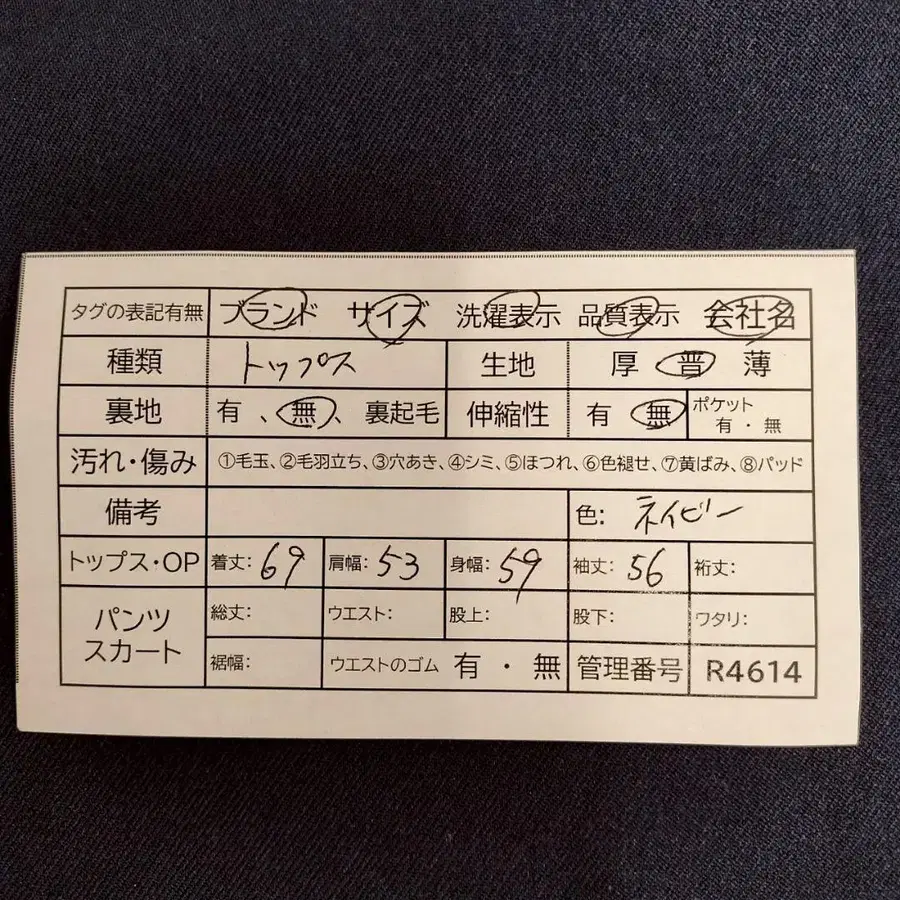 タグの表記有無 ブランド サイズ 洗濯表示 品質表示 会社名
種類 トップス 生地 厚 普 薄
裏地 有、無、裏起毛 伸縮性 有 無 ポケット 有・無
汚れ・傷み ①毛玉、②毛羽立ち、③穴あき、④シミ、⑤ほつれ、⑥色褪せ、⑦黄ばみ、⑧パッド
備考 色: ネイビー
トップス・OP 着丈: 69 肩幅: 53 身幅: 59 袖丈: 56 裄丈:
パンツ スカート
総丈: ウエスト: 股上: 股下: ワタリ:
裾幅: ウエストのゴム 有・無 管理番号 R4614